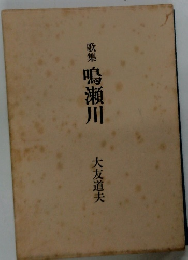 歌集
鳴瀬川
大友道夫